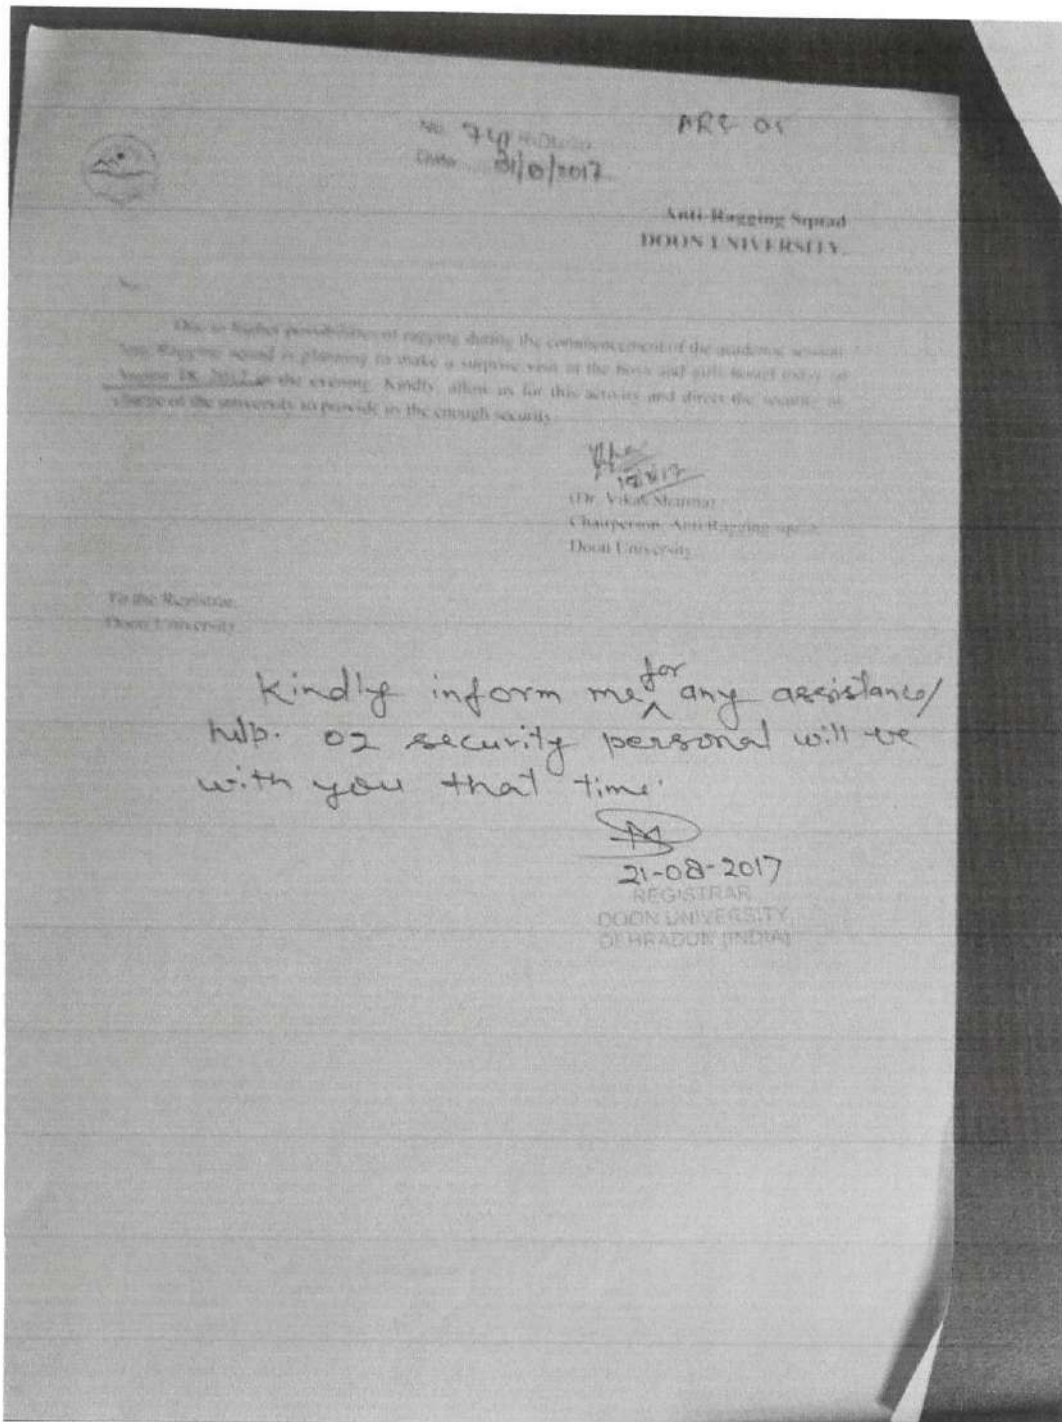 ARS 05
No. 741
Date 21/8/2017
Anti-Ragging Squad
DOON UNIVERSITY.
Due to higher possibilities of ragging during the commencement of the academic session
Anti Ragging squad is planning to make a surprise visit at the boys and girls hostel today on
August 18, 2017 in the evening. Kindly, allow us for this activity and direct the security in
charge of the university to provide us the enough security.
18/8/17
(Dr. Vikas Sharma)
Chairperson, Anti Ragging squad
Doon University
To the Registrar,
Doon University
Kindly inform me for any assistance/
help. 02 security personal will be
with you that time.
21-08-2017
REGISTRAR
DOON UNIVERSITY
DEHRADUN (INDIA)